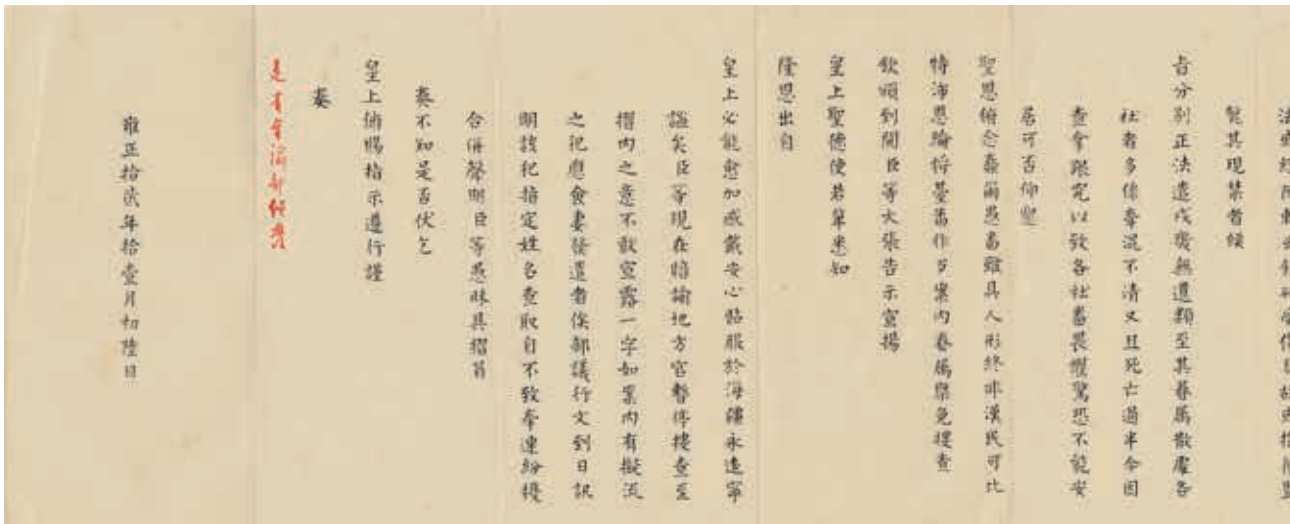 斃其現禁者候
旨分別正法遣戍幾無遺類至其眷屬散處各
社者多係牽混不清又且死亡過半今因
查拿跟究以致各社番畏懼驚恐不能安
居可否仰懇
聖恩俯念蠢爾愚番雖具人形終非漢民可比
特沛恩綸將臺番作歹案內眷屬槩免搜查
欽頒到閩臣等大張告示宣揚
皇上聖德使若輩悉知
隆恩出自
皇上必能愈加感戴安心帖服於海疆永遠寧
謐矣臣等現在暗諭地方官暫停搜查至
摺內之意不敢宣露一字如案內有擬流
之犯應僉妻發遣者俟部議行文到日訊
明該犯指定姓名查取自不致牽連紛擾
合併聲明臣等愚昧具摺
奏不知是否伏乞
皇上俯賜指示遵行謹
奏
是有旨諭部
雍正拾貳年拾壹月初陸日